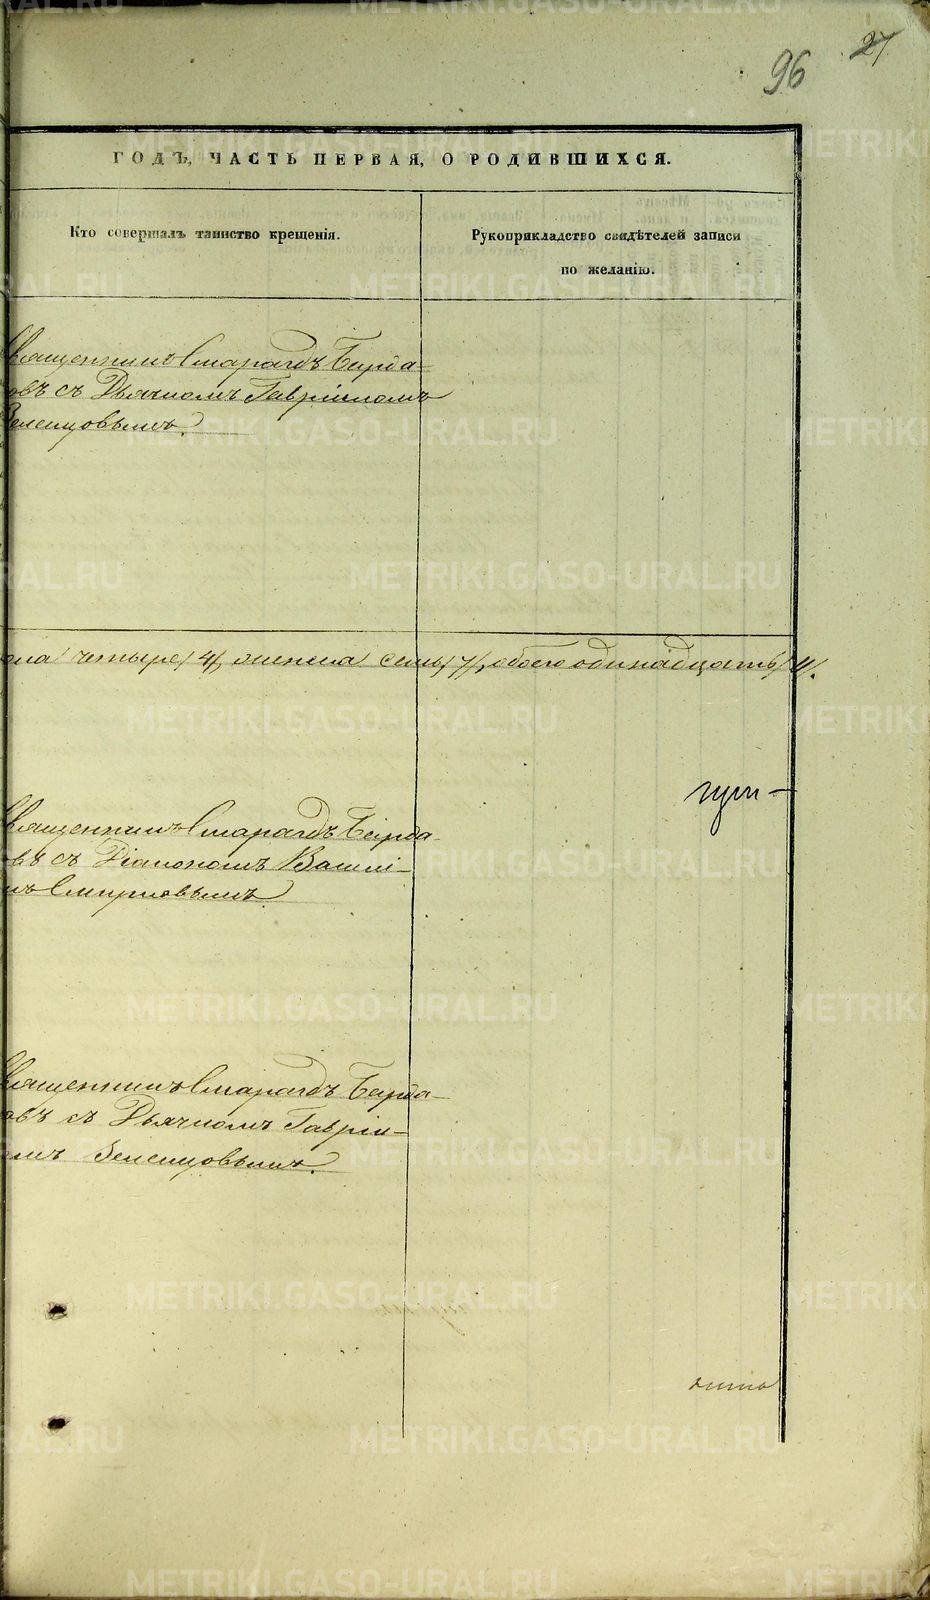 27
96
ГОДЪ, ЧАСТЬ ПЕРВАЯ, О РОДИВШИХСЯ.
Кто совершалъ таинство крещенія.
Рукоприкладство свидѣтелей записи
по желанію.
Священникъ Смарагдъ Бирда-
овъ съ Дьячкомъ Гавріиломъ
Зеленцовымъ.
ола четыре /4/, женска семь /7/, обоего одинадцать /11/.
Священникъ Смарагдъ Бирда-
овъ съ Діакономъ Васили-
мъ Смирновымъ.
Священникъ Смарагдъ Бирда-
овъ съ Дьячкомъ Гавріи-
омъ Зеленцовымъ.
METRIKI.GASO-URAL.RU